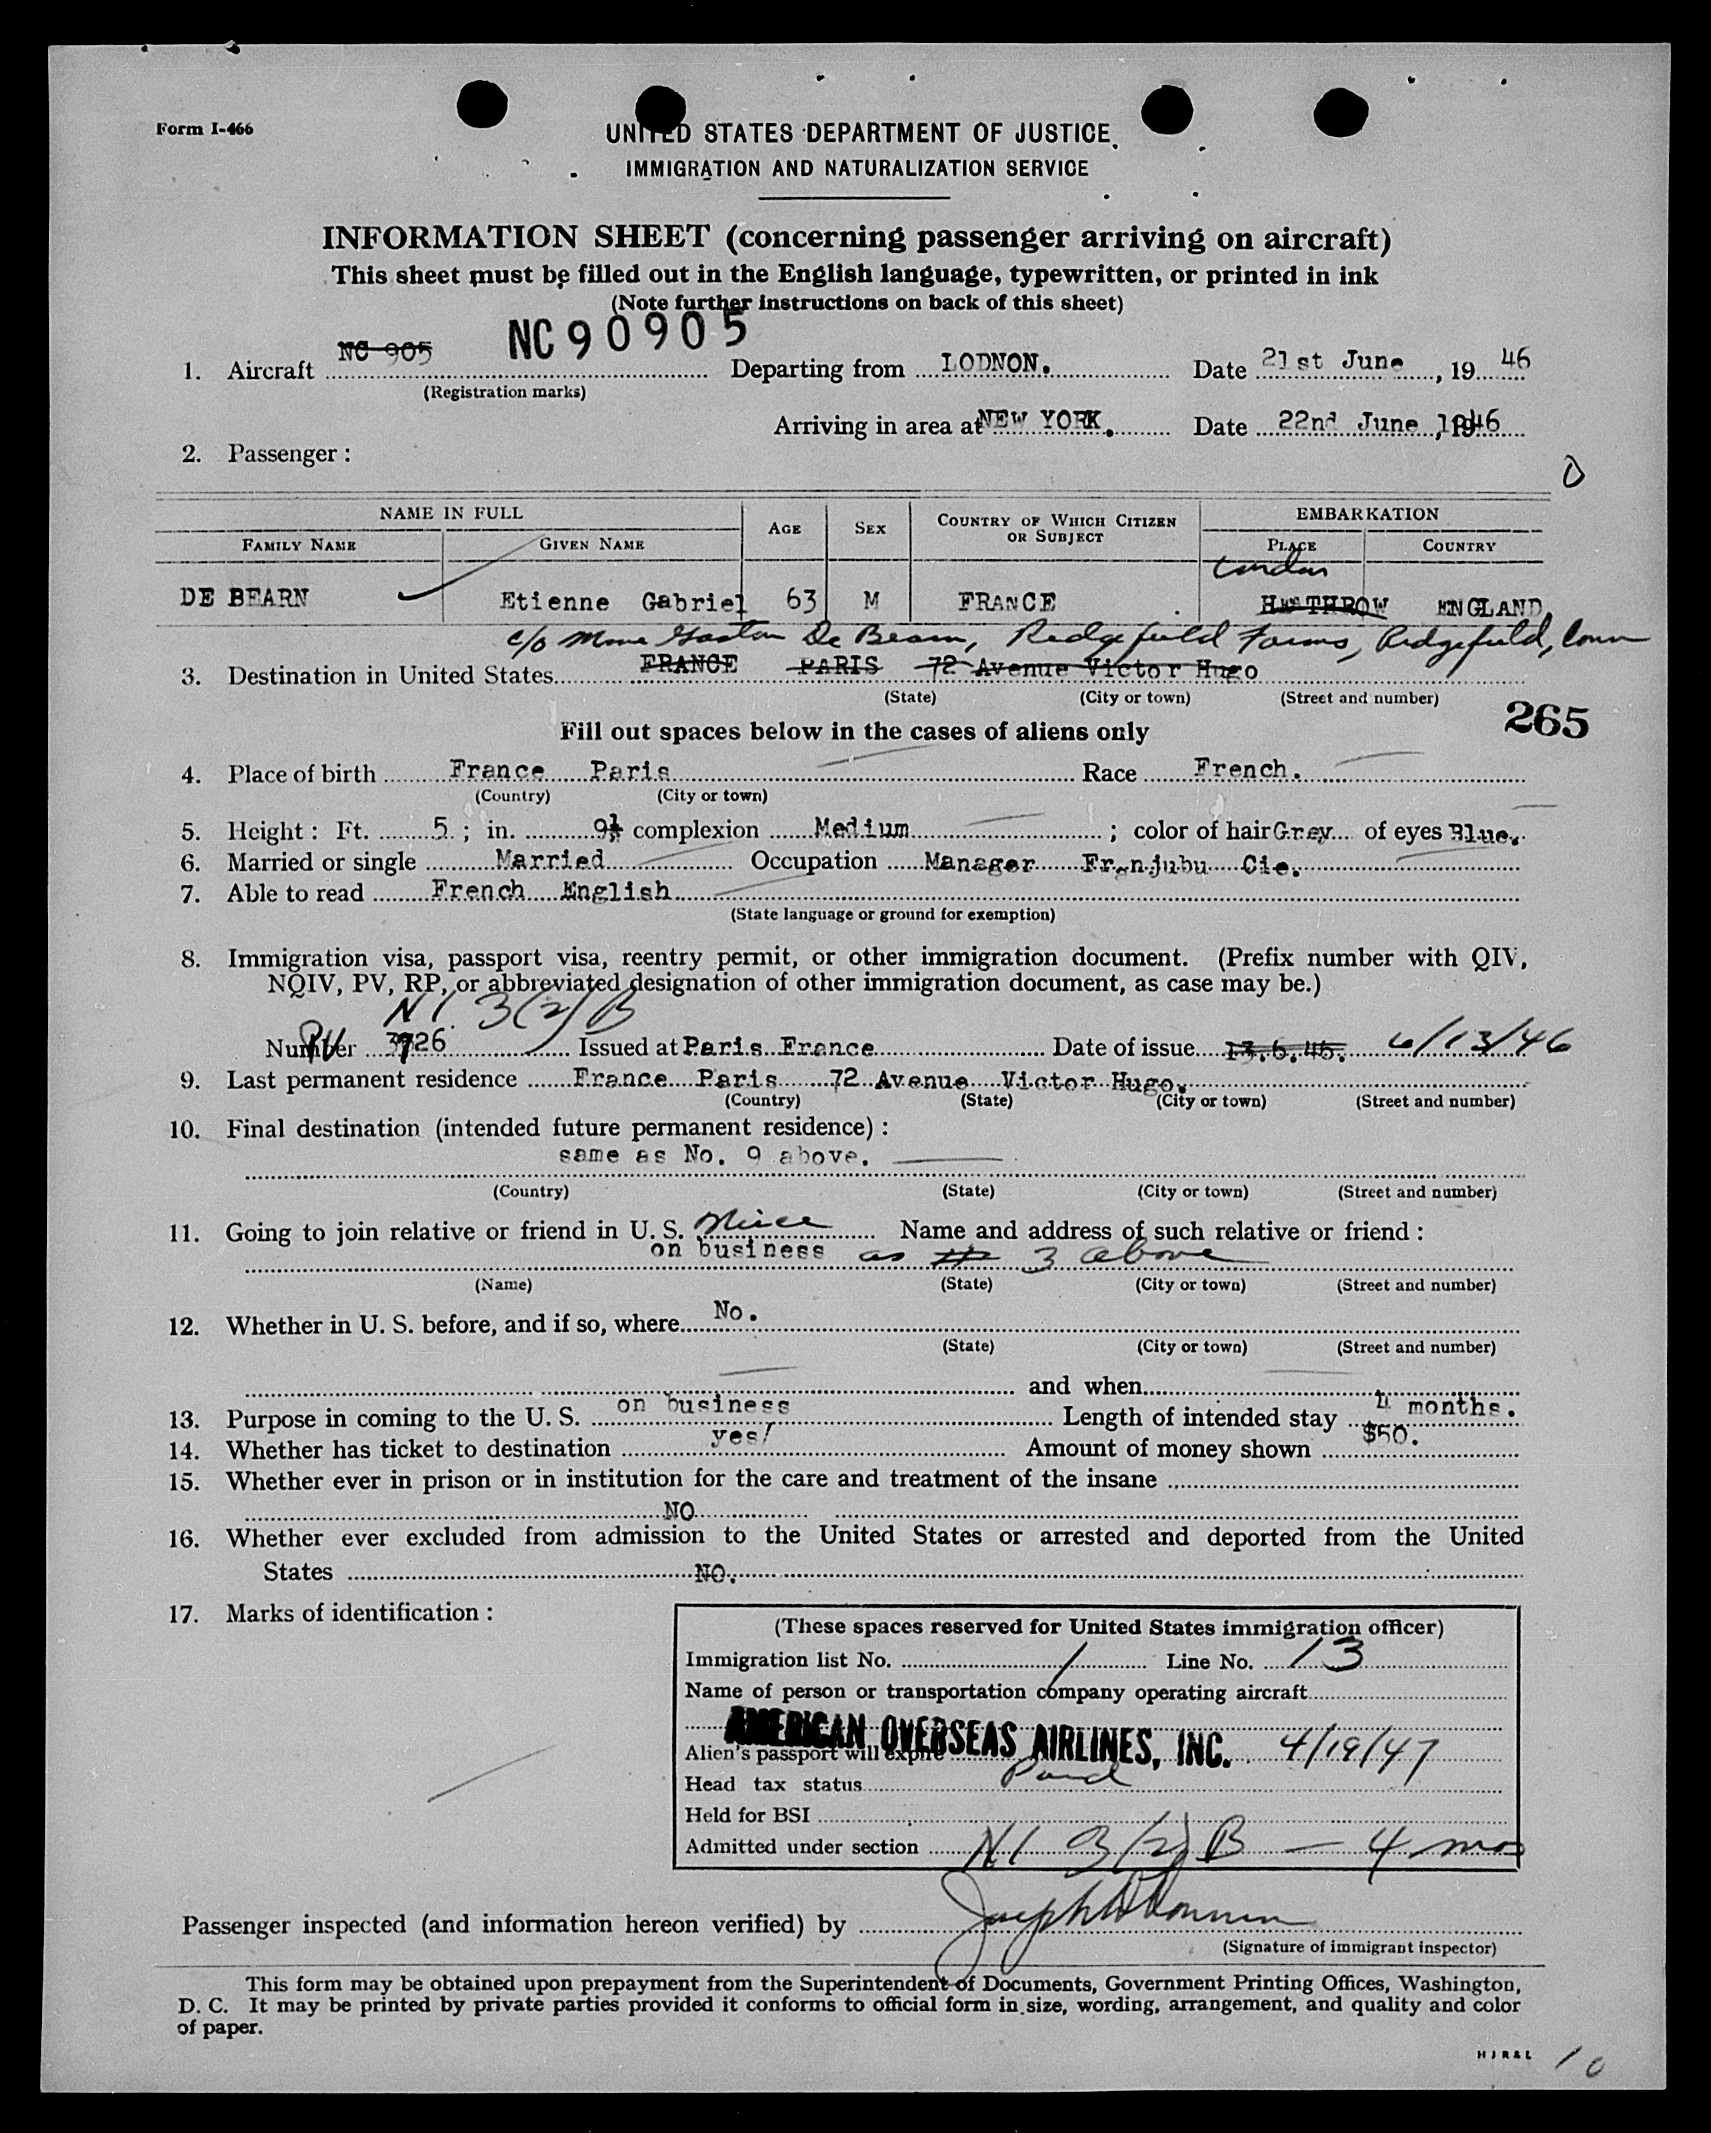 Form I-466
UNITED STATES DEPARTMENT OF JUSTICE
IMMIGRATION AND NATURALIZATION SERVICE
INFORMATION SHEET (concerning passenger arriving on aircraft)
This sheet must be filled out in the English language, typewritten, or printed in ink
(Note further instructions on back of this sheet)
1. Aircraft NC 905 NC90905 Departing from LODNON. Date 21st June, 19 46
(Registration marks)
Arriving in area at NEW YORK. Date 22nd June 1946
2. Passenger:
NAME IN FULL AGE SEX COUNTRY OF WHICH CITIZEN OR SUBJECT EMBARKATION
FAMILY NAME GIVEN NAME PLACE COUNTRY
London
DE BEARN Etienne Gabriel 63 M FRANCE HEATHROW ENGLAND,
c/o Mme Gaston De Bearn, Ridgefield Farms, Ridgefield, Conn
3. Destination in United States FRANCE PARIS 72 Avenue Victor Hugo
(State) (City or town) (Street and number)
265
Fill out spaces below in the cases of aliens only
4. Place of birth France Paris Race French.
(Country) (City or town)
5. Height: Ft. 5; in. 9½ complexion Medium; color of hair Grey of eyes Blue.
6. Married or single Married Occupation Manager Franjubu Cie.
7. Able to read French English
(State language or ground for exemption)
8. Immigration visa, passport visa, reentry permit, or other immigration document. (Prefix number with QIV,
NQIV, PV, RP, or abbreviated designation of other immigration document, as case may be.)
NI 3(2)B
Number PV 3726 Issued at Paris France Date of issue 13.6.46. 6/13/46
9. Last permanent residence France Paris 72 Avenue Victor Hugo.
(Country) (State) (City or town) (Street and number)
10. Final destination (intended future permanent residence):
same as No. 9 above.
(Country) (State) (City or town) (Street and number)
11. Going to join relative or friend in U. S. Niece Name and address of such relative or friend:
on business as # 3 above
(Name) (State) (City or town) (Street and number)
12. Whether in U. S. before, and if so, where No.
(State) (City or town) (Street and number)
and when
13. Purpose in coming to the U. S. on business Length of intended stay 4 months.
14. Whether has ticket to destination yes/ Amount of money shown $50.
15. Whether ever in prison or in institution for the care and treatment of the insane
NO
16. Whether ever excluded from admission to the United States or arrested and deported from the United
States NO.
17. Marks of identification:
(These spaces reserved for United States immigration officer)
Immigration list No. 1 Line No. 13
Name of person or transportation company operating aircraft
AMERICAN OVERSEAS AIRLINES, INC.
Alien's passport will expire 4/19/47
Head tax status Paid
Held for BSI
Admitted under section NI 3(2)B — 4 mos
Passenger inspected (and information hereon verified) by
(Signature of immigrant inspector)
This form may be obtained upon prepayment from the Superintendent of Documents, Government Printing Offices, Washington,
D. C. It may be printed by private parties provided it conforms to official form in size, wording, arrangement, and quality and color
of paper.
HJR&L 10